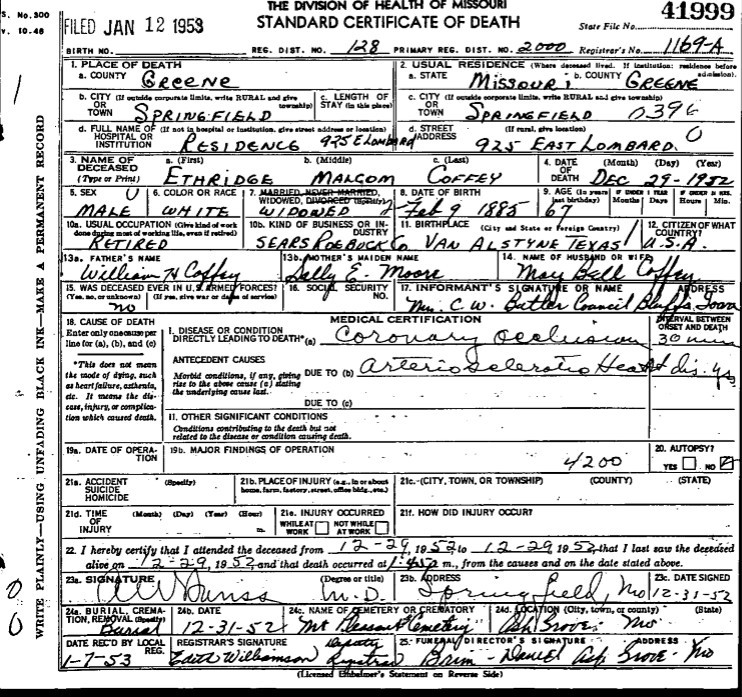 THE DIVISION OF HEALTH OF MISSOURI
S. No. 300
v. 10-48
FILED JAN 12 1953
STANDARD CERTIFICATE OF DEATH
State File No. 41999
BIRTH NO. REG. DIST. NO. 128 PRIMARY REG. DIST. NO. 2000 Registrar's No. 1169-A
1. PLACE OF DEATH
a. COUNTY Greene
2. USUAL RESIDENCE (Where deceased lived. If institution: residence before admission).
a. STATE Missouri b. COUNTY Greene
b. CITY (If outside corporate limits, write RURAL and give township) OR TOWN Springfield
c. LENGTH OF STAY (in this place)
c. CITY (If outside corporate limits, write RURAL and give township) OR TOWN Springfield 0396
d. FULL NAME OF (If not in hospital or institution, give street address or location) HOSPITAL OR INSTITUTION Residence 925 E Lombard
d. STREET ADDRESS (If rural, give location) 925 East Lombard. 0
3. NAME OF DECEASED (Type or Print)
a. (First) Ethridge b. (Middle) Malcom c. (Last) Coffey
4. DATE OF DEATH (Month) (Day) (Year) Dec 29-1952
5. SEX Male
6. COLOR OR RACE White
7. MARRIED, NEVER MARRIED, WIDOWED, DIVORCED (Specify) Widowed 2
8. DATE OF BIRTH Feb 9 1885
9. AGE (In years last birthday) 67 IF UNDER 1 YEAR Months Days IF UNDER 24 HRS. Hours Min.
10a. USUAL OCCUPATION (Give kind of work done during most of working life, even if retired) Retired
10b. KIND OF BUSINESS OR INDUSTRY Sears Roebuck Co.
11. BIRTHPLACE (City and State or Foreign Country) Van Alstyne Texas
12. CITIZEN OF WHAT COUNTRY? U.S.A.
13a. FATHER'S NAME William H Coffey
13b. MOTHER'S MAIDEN NAME Sally E. Moore
14. NAME OF HUSBAND OR WIFE May Bell Coffey
15. WAS DECEASED EVER IN U.S. ARMED FORCES? (Yes, no, or unknown) (If yes, give war or dates of service) no
16. SOCIAL SECURITY NO.
17. INFORMANT'S SIGNATURE OR NAME ADDRESS Mrs. C.W. Butler Council Bluffs, Iowa
18. CAUSE OF DEATH
Enter only one cause per line for (a), (b), and (c)
*This does not mean the mode of dying, such as heart failure, asthenia, etc. It means the disease, injury, or complication which caused death.
MEDICAL CERTIFICATION
INTERVAL BETWEEN ONSET AND DEATH
I. DISEASE OR CONDITION DIRECTLY LEADING TO DEATH* (a) Coronary Occlusion 30 min
ANTECEDENT CAUSES
Morbid conditions, if any, giving rise to the above cause (a) stating the underlying cause last.
DUE TO (b) Arteriosclerotic Heart dis. yrs
DUE TO (c)
II. OTHER SIGNIFICANT CONDITIONS
Conditions contributing to the death but not related to the disease or condition causing death.
19a. DATE OF OPERATION
19b. MAJOR FINDINGS OF OPERATION
4200
20. AUTOPSY? YES NO
21a. ACCIDENT SUICIDE HOMICIDE (Specify)
21b. PLACE OF INJURY (e.g., in or about home, farm, factory, street, office bldg., etc.)
21c. (CITY, TOWN, OR TOWNSHIP) (COUNTY) (STATE)
21d. TIME OF INJURY (Month) (Day) (Year) (Hour) m.
21e. INJURY OCCURRED WHILE AT WORK NOT WHILE AT WORK
21f. HOW DID INJURY OCCUR?
22. I hereby certify that I attended the deceased from 12-29, 1952 to 12-29, 1952, that I last saw the deceased
alive on 12-29, 1952 and that death occurred at m., from the causes and on the date stated above.
23a. SIGNATURE (Degree or title) M.D.
23b. ADDRESS Springfield, Mo
23c. DATE SIGNED 12-31-52
24a. BURIAL, CREMATION, REMOVAL (Specify) Burial
24b. DATE 12-31-52
24c. NAME OF CEMETERY OR CREMATORY Mt Pleasant Cemetery
24d. LOCATION (City, town, or county) (State) Ash Grove Mo
DATE REC'D BY LOCAL REG. 1-7-53
REGISTRAR'S SIGNATURE Edith Williamson Deputy Registrar
25. FUNERAL DIRECTOR'S SIGNATURE ADDRESS Brim-Daniel Ash Grove-Mo
(Licensed Embalmer's Statement on Reverse Side)
WRITE PLAINLY—USING UNFADING BLACK INK—MAKE A PERMANENT RECORD
1
0
0